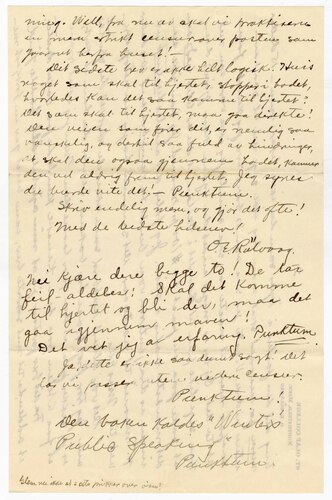 ming. Well, fra nu av skal vi praktisere
en men strikt censur over posten som
gaar ut herfra huset!
Dit sidste brev er ikke helt logisk. Hvis
noget som skal til hjertet, stopper i hodet,
hvorledes kan det saa komme til hjertet?
Det som skal til hjertet, maa gaa direkte!
Den veien som før er dit, er nemlig saa
vanskelig, og dertil saa fuld av hindringer,
at skal den ogsaa gjennem hodet, kommer
den vel aldrig frem til hjertet. Jeg synes
du burde vite det. — Punktum.
Skriv endelig mere, og gjør det ofte!
Med de bedste hilsener!
O E Rølvaag
Nei kjære dere begge to! De tar
feil aldeles! Skal det komme
til hjertet og bli der, maa det
gaa igjennem maven!
Det vet jeg av erfaring. Punktum.
Ja, dette er ikke saa dumt sagt! Det
Punktum!
Den boken kaldes "Winters
Public Speaking"
Punktum